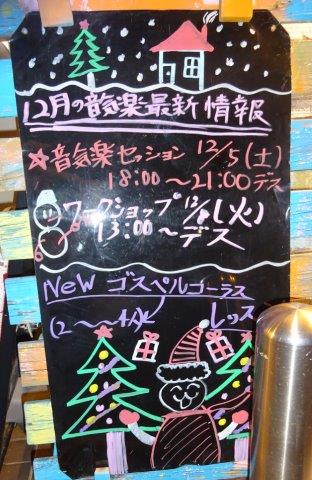 12月の音気楽最新情報
☆音気楽セッション 12/5(土)
18:00〜21:00デス
ワークショップ 12/8(火)
13:00〜デス
New ゴスペルコーラス
レッス